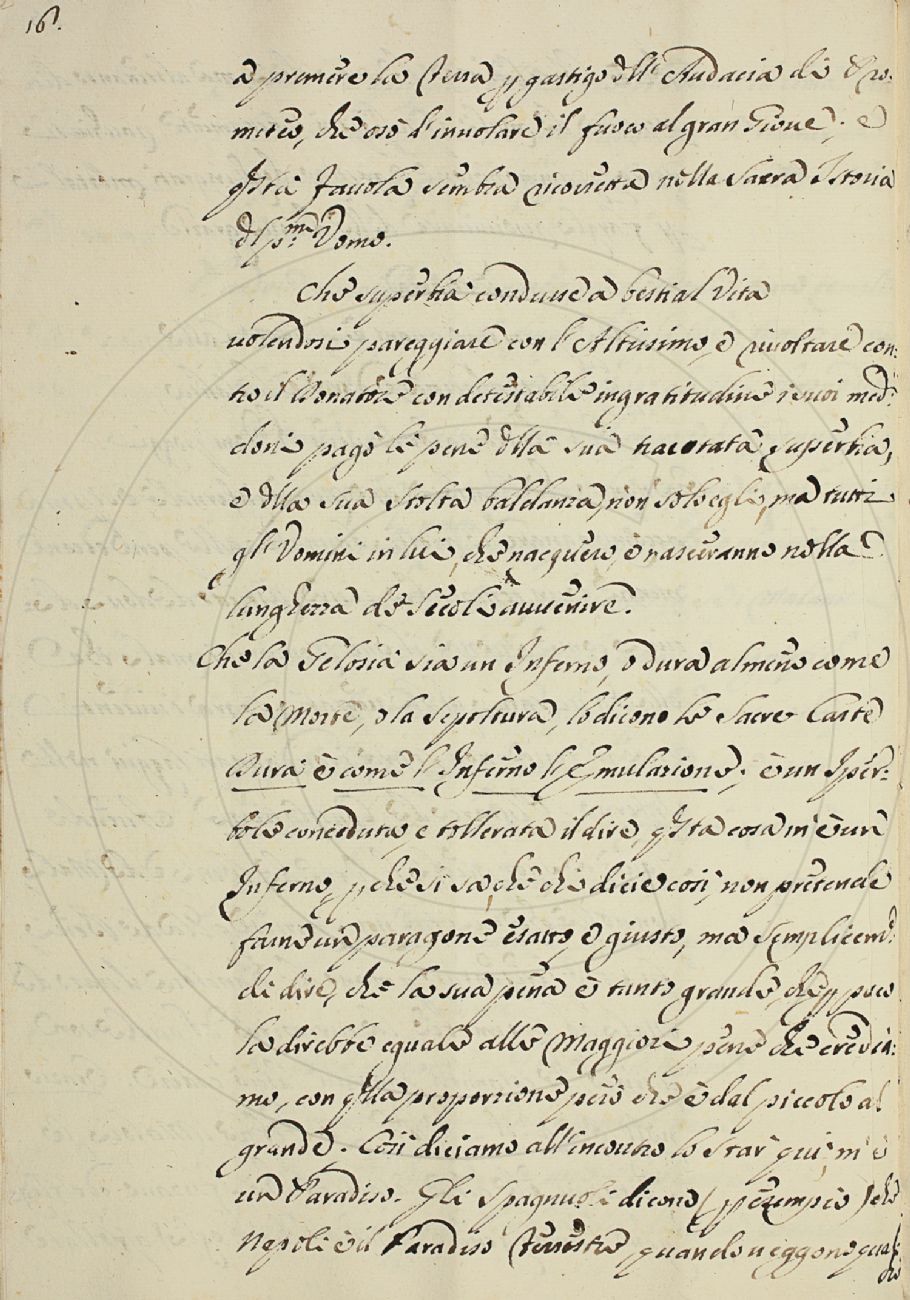 16.
a premere la Terra p gastigo dll' Audacia di Pro-
meteo, che osò d'involare il fuoco al gran Giove; e
qsta favola sembra ricovrata nella Sacra Istoria
dl pmo Uomo.
Che superbia condusse a bestial Vita
volendosi pareggiare con l'Altissimo, e rivoltare con:
tro il Donatore con detestabile ingratitudine i suoi med:
doni pagò le pene dlla sua tracotata superbia,
e dlla sua stolta baldanza, non solo egli, ma tutti
gl' Uomini in lui, che nacquero, e nasceranno nella
lunghezza de Secoli avvenire.
Che la Gelosia sia un Inferno, o dura almeno come
la Morte, o la Sepoltura, lo dicono le Sacre Carte
Dura è come l'Inferno l'Emulazione; è un Iper:
bole conceduta, e tollerata il dire, qsta cosa m'è un
Inferno, p che si sa, che chi dicie così, non pretende
farne un paragone esatto, e giusto, ma semplicem:
di dire, che la sua pena è tanto grande, che p poco
la direbbe eguale alle Maggiori pene che credia:
mo, con qlla proporzione però che è dal piccolo al
grande. Così diciamo all'incontro lo star qui, m'è
un Paradiso. Gli Spagnuoli dicono (p esempio) che
Napoli è il Paradiso Terrestre, quando veggono qual
che